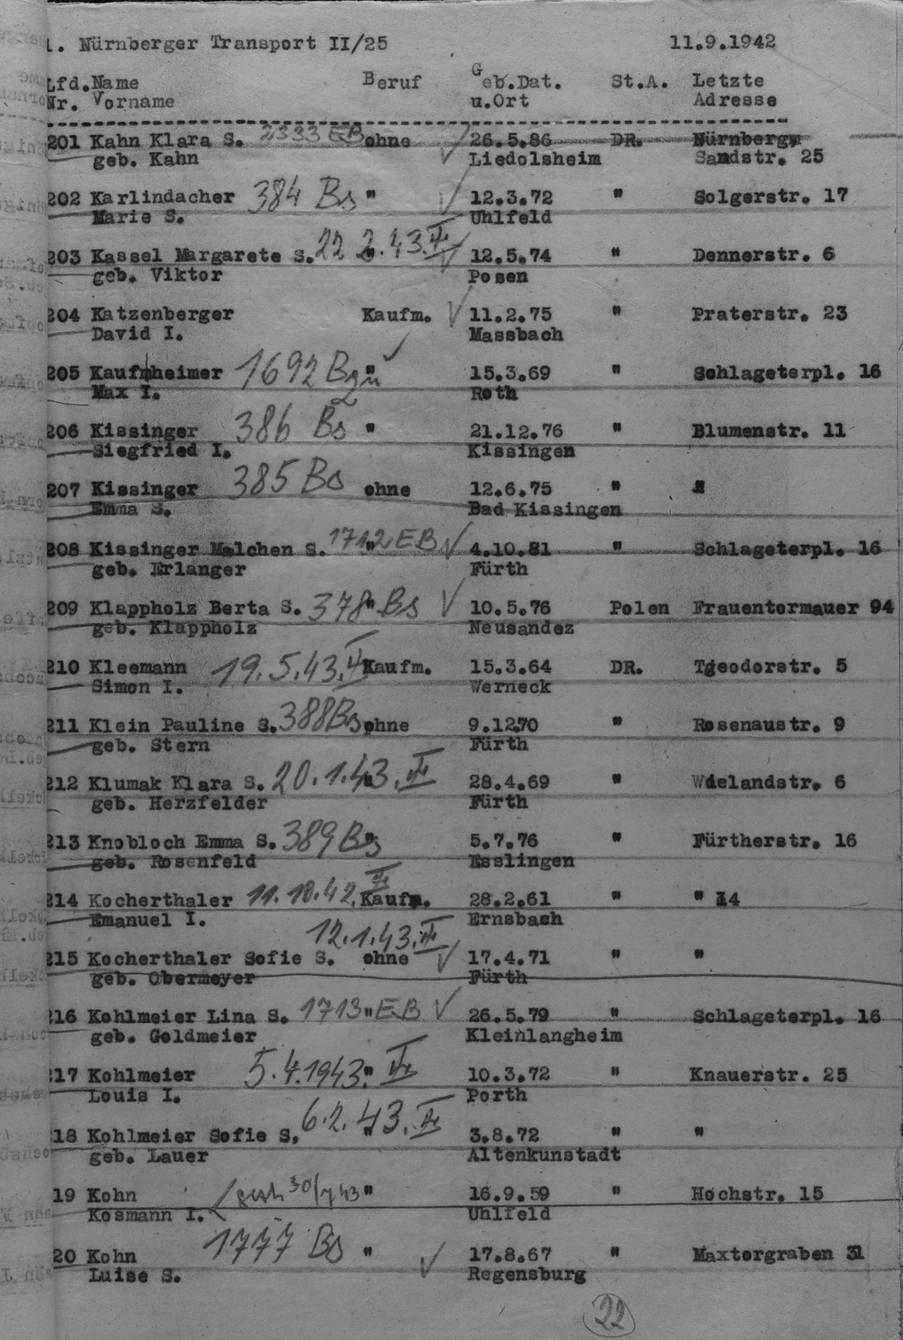 1. Nürnberger Transport II/25 11.9.1942
Lfd. Name Beruf Geb.Dat. St.A. Letzte
Nr. Vorname u.Ort Adresse
201 Kahn Klara S. 2333 EB ohne 26.5.86 DR. Nürnberg,
geb. Kahn Liedolsheim Sandstr. 25
202 Karlindacher 384 Bs " 12.3.72 " Solgerstr. 17
Marie S. Uhlfeld
203 Kassel Margarete S. 22 2.43. " 12.5.74 " Dennerstr. 6
geb. Viktor Posen
204 Katzenberger Kaufm. 11.2.75 " Praterstr. 23
David I. Massbach
205 Kaufmheimer 1692 " 15.3.69 " Schlageterpl. 16
Max I. Roth
206 Kissinger 386 Bs " 21.12.76 " Blumenstr. 11
Siegfried I. Kissingen
207 Kissinger 385 Bs ohne 12.6.75 " "
Emma S. Bad Kissingen
208 Kissinger Malchen S. 1712 EB " 4.10.81 " Schlageterpl. 16
geb. Erlanger Fürth
209 Klappholz Berta S. 378 Bs " 10.5.76 Polen Frauentormauer 94
geb. Klappholz Neusandez
210 Kleemann 19.5.43. Kaufm. 15.3.64 DR. Tgeodorstr. 5
Simon I. Werneck
211 Klein Pauline S. 388 Bs ohne 9.1270 " Rosenaustr. 9
geb. Stern Fürth
212 Klumak Klara S. 20.1.43. " 28.4.69 " Wielandstr. 6
geb. Herzfelder Fürth
213 Knobloch Emma S. 389 Bs " 5.7.76 " Fürtherstr. 16
geb. Rosenfeld Esslingen
214 Kocherthaler 11.10.42. Kaufm. 28.2.61 " " 14
Emanuel I. Ernsbach
12.1.43.
215 Kocherthaler Sofie S. ohne 17.4.71 " "
geb. Obermeyer Fürth
216 Kohlmeier Lina S. 1713 EB " 26.5.79 " Schlageterpl. 16
geb. Goldmeier Kleinlangheim
217 Kohlmeier 5.4.1943. " 10.3.72 " Knauerstr. 25
Louis I. Porth
218 Kohlmeier Sofie S, 6.2.43. " 3.8.72 " "
geb. Lauer Altenkunstadt
19 Kohn gest. 30/7 43 " 16.9.59 " Hochstr. 15
Kosmann I. Uhlfeld
20 Kohn 1777 Bs " 17.8.67 " Maxtorgraben 31
Luise S. Regensburg
22